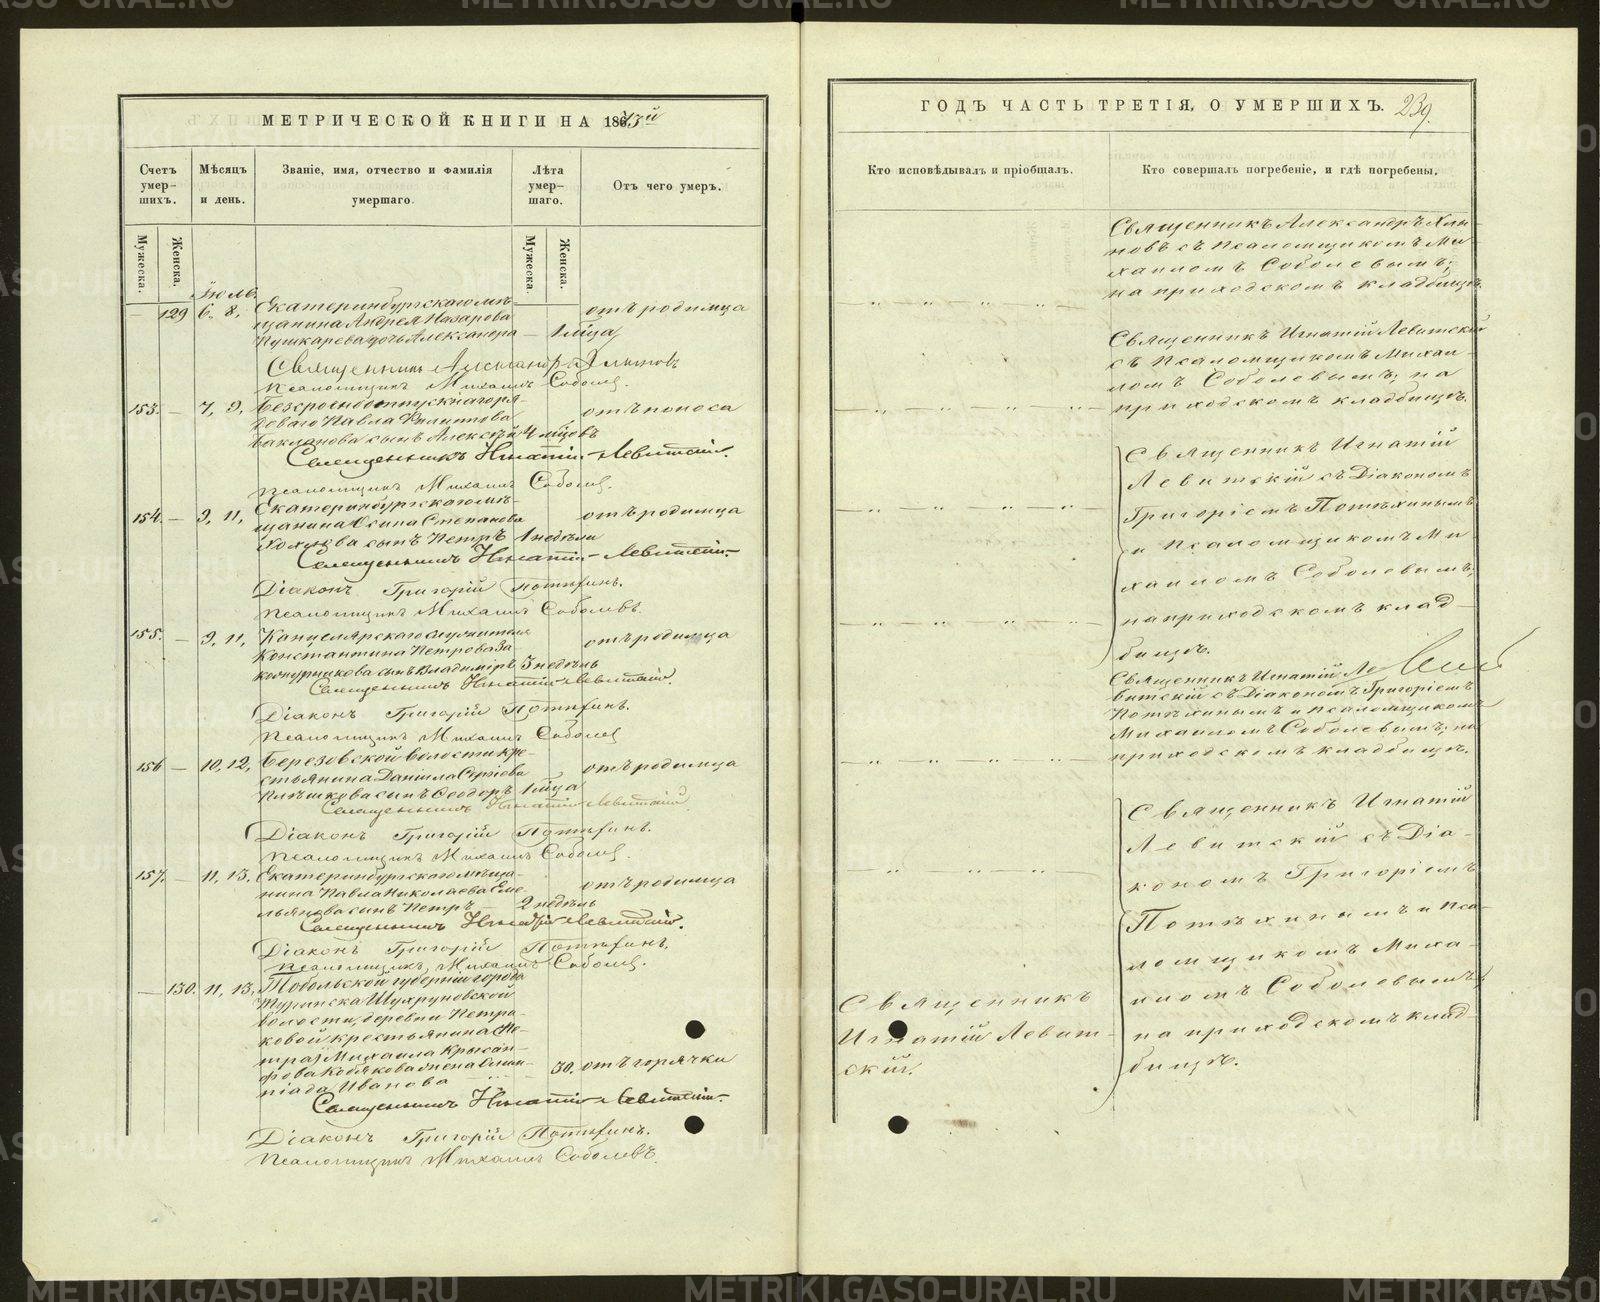 МЕТРИЧЕСКОЙ КНИГИ НА 1873й
Счетъ умер-
шихъ.
Мѣсяцъ
и день.
Званіе, имя, отчество и фамилія
умершаго.
Лѣта
умер-
шаго.
Отъ чего умеръ.
Мужеска.
Женска.
Мужеска.
Женска.
Іюль
129 6. 8. Екатеринбургскаго мѣ-
щанина Андрея Назарова
Пушкарева дочь Александра — 1 м͠ца
отъ родимца
Священникъ Александръ Хлыновъ
Псаломщикъ Михаилъ Соболевъ.
153. — 7, 9, Безсрочноотпускнаго ря-
доваго Павла Филиппова
Бакланова сынъ Алексѣй 4 м͠цовъ
отъ поноса
Священникъ Игнатій Левитскій.
Псаломщикъ Михаилъ Соболевъ.
154. — 9, 11, Екатеринбургскаго мѣ-
щанина Осипа Степанова
сынъ Петръ 1 недѣли
отъ родимца
Священникъ Игнатій Левитскій.
Діаконъ Григорій Потѣхинъ.
Псаломщикъ Михаилъ Соболевъ.
155. — 9, 11, Канцелярскаго служителя
Константина Петрова
сынъ Владиміръ 3 недѣль
отъ родимца
Священникъ Игнатій Левитскій.
Діаконъ Григорій Потѣхинъ.
Псаломщикъ Михаилъ Соболевъ
156 — 10, 12, Березовской волости кре-
стьянина Даніила Сергіева
сынъ Ѳеодоръ 1 м͠ца
отъ родимца
Священникъ Игнатій Левитскій.
Діаконъ Григорій Потѣхинъ.
Псаломщикъ Михаилъ Соболевъ.
157. — 11, 13. Екатеринбургскаго мѣща-
нина Павла Николаева Еме-
льянова сынъ Петръ — 2 недѣль
отъ родимца
Священникъ Игнатій Левитскій.
Діаконъ Григорій Потѣхинъ.
Псаломщикъ Михаилъ Соболевъ.
— 130. 11, 13, Тобольской губерніи города
Туринска Шухруповской
волости, деревни Петра-
ковой крестьянина
Михаила
жена Олим-
піада Иванова
30. отъ горячки
Священникъ Игнатій Левитскій.
Діаконъ Григорій Потѣхинъ.
Псаломщикъ Михаилъ Соболевъ.
ГОДЪ ЧАСТЬ ТРЕТІЯ, О УМЕРШИХЪ. 239.
Кто исповѣдывалъ и пріобщалъ.
Кто совершалъ погребеніе, и гдѣ погребены.
Священникъ Александръ Хлы-
новъ съ Псаломщикомъ Ми-
хаиломъ Соболевымъ;
на приходскомъ кладбищѣ.
Священникъ Игнатій Левитскій
съ Псаломщикомъ Михаи-
ломъ Соболевымъ; на
приходскомъ кладбищѣ.
Священникъ Игнатій
Левитскій съ Діакономъ
Григоріемъ Потѣхинымъ
и Псаломщикомъ Ми-
хаиломъ Соболевымъ;
на приходскомъ клад-
бищѣ.
Священникъ Игнатій Ле-
витскій съ Діакономъ Григоріемъ
Потѣхинымъ и Псаломщикомъ
Михаиломъ Соболевымъ; на
приходскомъ кладбищѣ.
Священникъ Игнатій
Левитскій съ Діа-
кономъ Григоріемъ
Потѣхинымъ и Пса-
ломщикомъ Миха-
иломъ Соболевымъ;
на приходскомъ клад-
бищѣ.
Священникъ
Игнатій Левит-
скій.
METRIKI.GASO-URAL.RU